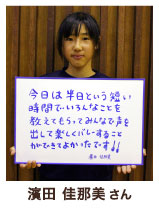 今日は半日という短い
時間で、いろんなことを
教えてもらってみんなで声を
出して楽しくバレーすること
ができてよかったです!!
濱田 佳那美
濱田 佳那美さん